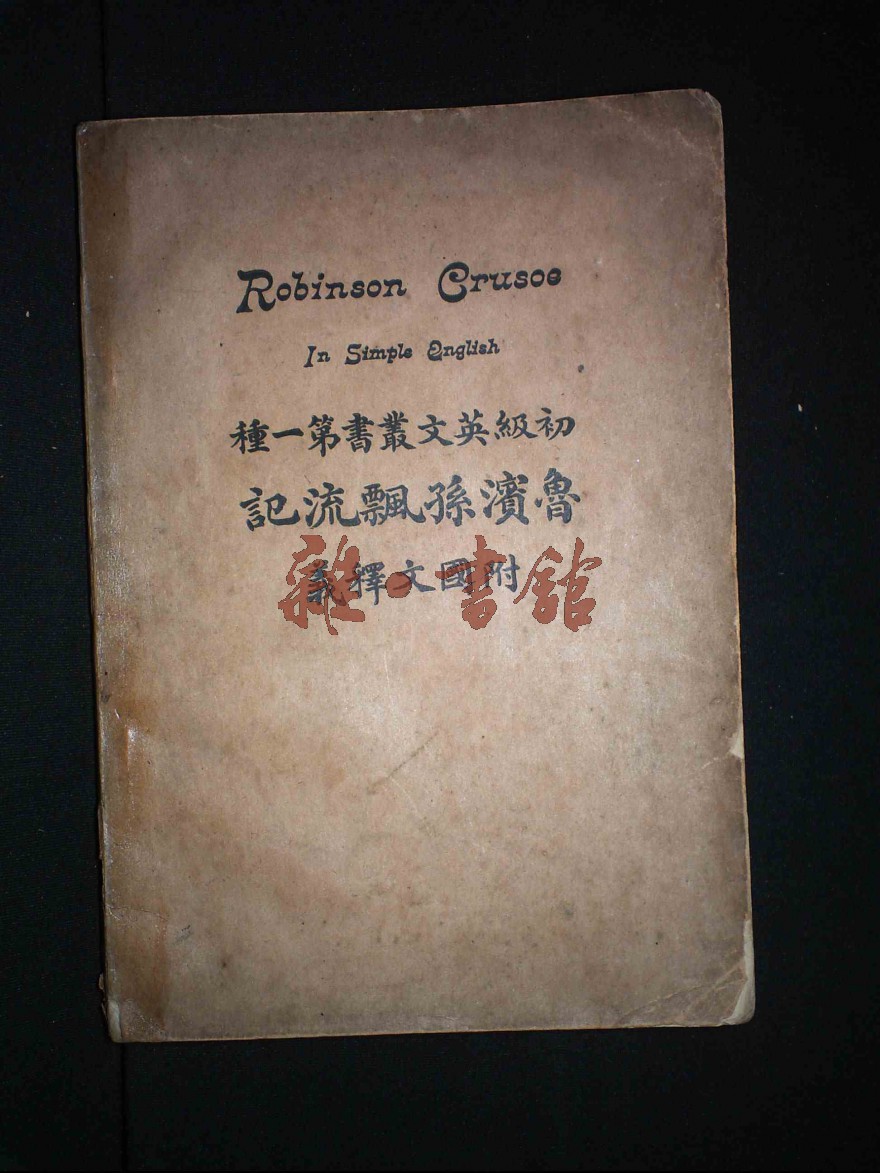 Robinson Crusoe
In Simple English
初級英文叢書第一種
魯濱孫飄流記
附國文釋義
雜·書館